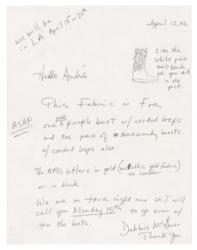 we will be
in L.A. April 19th or 20th
April 12, 02
Like the
white pair
and black
pr you did
in the
past.
Hello André
This Fabric is For
ASAP
one purple boot w/ corded loops
and one pair of Burgundy boots
w/ corded loops also.
The NPG letters in gold (metallic gold fabric)
or leather
or in black.
We are on tour right now so I will
call you Monday 15th to go over w/
you the boots.
Debbie McGuan
Thank You